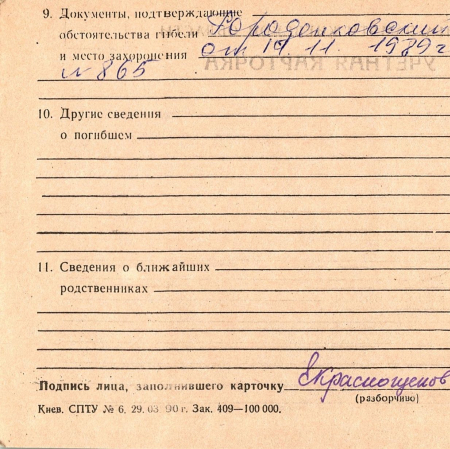 9. Документы, подтверждающие Городенковский
обстоятельства гибели от 19. 11. 1989 г
и место захоронения
№ 865
10. Другие сведения
о погибшем
11. Сведения о ближайших
родственниках
Подпись лица, заполнившего карточку
(разборчиво)
Киев. СПТУ № 6. 29. 03 90 г. Зак. 409—100 000.